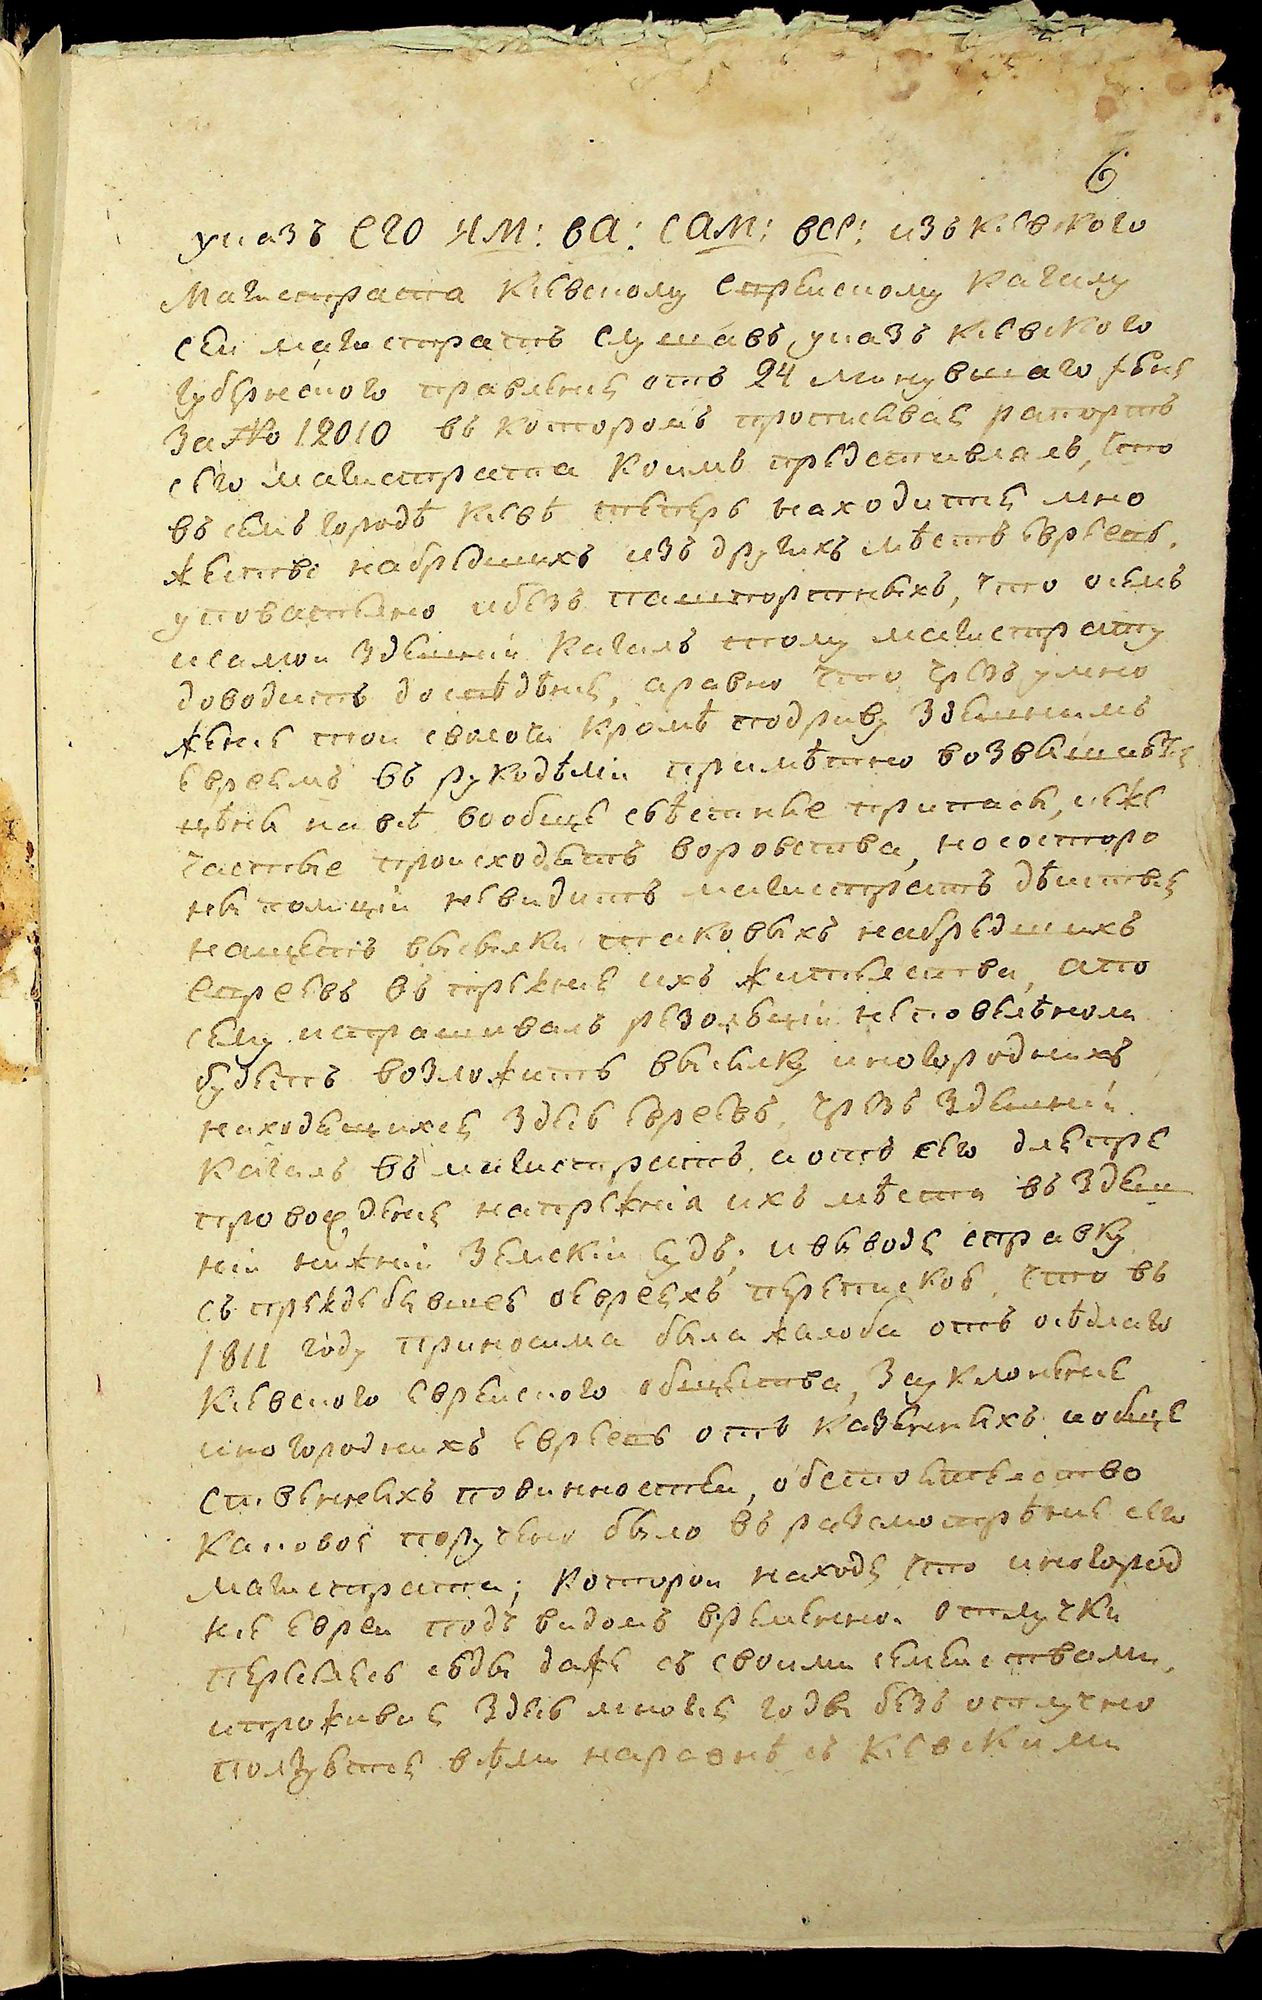 6
указъ ЕГО ИМ: ВА: САМ: ВСЕ: изъ киевского
Магистрата Киевскому Еврейскому Кагалу
сей магистратъ слушавъ указъ киевского
губернского правления отъ 24 минувшаго
За № 12010 въ которомъ прописывая рапортъ
сего магистрата коимъ представлялъ, что
въ семъ городѣ киевѣ теперь находится мно
жество набредшихъ изъ другихъ мѣстъ евреевъ.
уповательно ибезъ пашпортныхъ, что осемъ
исамой здешній Кагалъ тому магистрату
доводитъ досвѣдения, аравно что чрезъ умно
жение той сволочи кромѣ подриву здешнимъ
евреямъ въ рукодѣліи примѣтно возвышились
цѣны на всѣ вообще съѣстные припасы,
частые происходятъ воровства,нососторо
ны полиціи невидитъ магистратъ дѣйствия
нащетъ высылки таковыхъ набредшихъ
евреевъ въ прежние ихъ жительства, апо
сему испрашивалъ резолюціи неповелѣноли
будетъ возложить высылку иногороднихъ
находящихся здесь евреевъ, чрезъ здешній
кагалъ въ магистратъ, иотъ сего для пре
провождения напрежнія ихъ мѣста въ здеш
ній нижній Земскій судъ; ивыводя справку
съ прежде бывшей оевреяхъ переписков, что въ
1811 году приносима была жалоба отъ осѣдлаго
Киевского еврейского общества, За уклонение
иногороднихъ евреевъ отъ казенныхъ иобще
ственныхъ повинностей, обстоятельство
каковое поручено было въ разсмотрѣние сего
магистрата; которой находя что иногород
ние евреи подъ видомъ временной отлучки
переехавъ сюда даже съ своими семействами,
ипроживая здесь многия годы безъ отлучно
пользуются всѣми наравнѣ съ киевскими